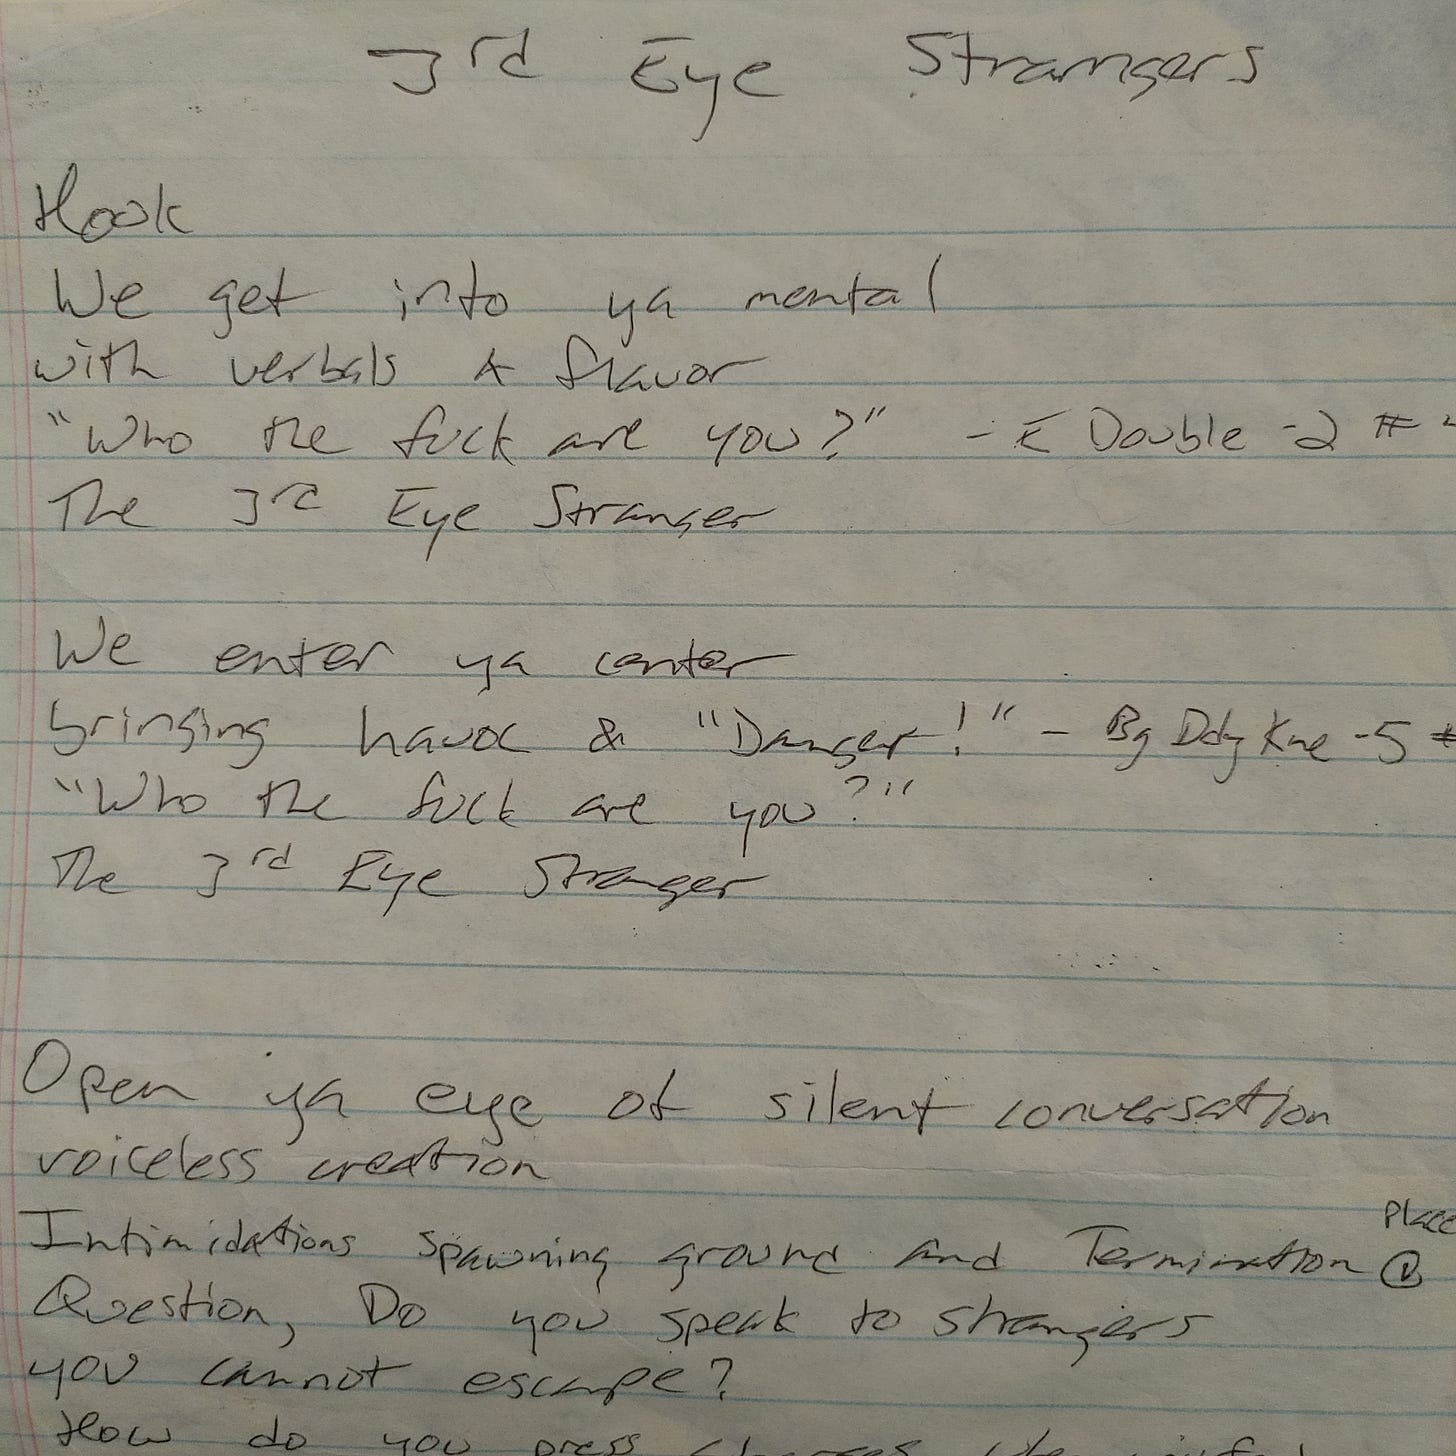 3rd Eye Strangers
Hook
We get into ya mental
with verbals & flavor
"Who the fuck are you?" - E Double -2 #
The 3rd Eye Stranger
We enter ya center
bringing havoc & "Danger!" - Bg Ddy Kne -5 #
"Who the fuck are you?"
The 3rd Eye Stranger
Open ya eye of silent conversation
voiceless creation
Place
Intimidations spawning ground and Termination
Question, Do you speak to strangers
you cannot escape?
How do you press charges